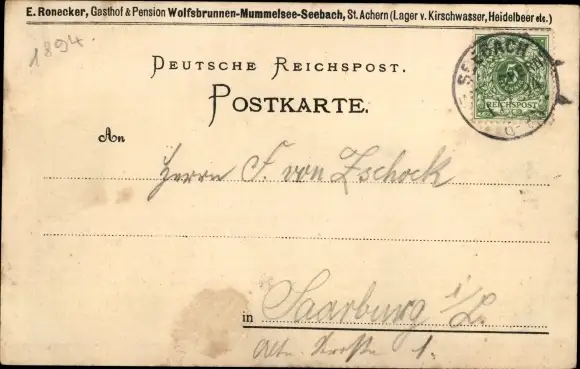 E. Ronecker, Gasthof & Pension Wolfsbrunnen-Mummelsee-Seebach, St. Achern (Lager v. Kirschwasser, Heidelbeer etc.)
1894.
DEUTSCHE REICHSPOST.
SEEBACH
5
REICHSPOST
POSTKARTE.
An
Herrn F. von Zschock
in Saarburg i/L.
Alte Straße 1.